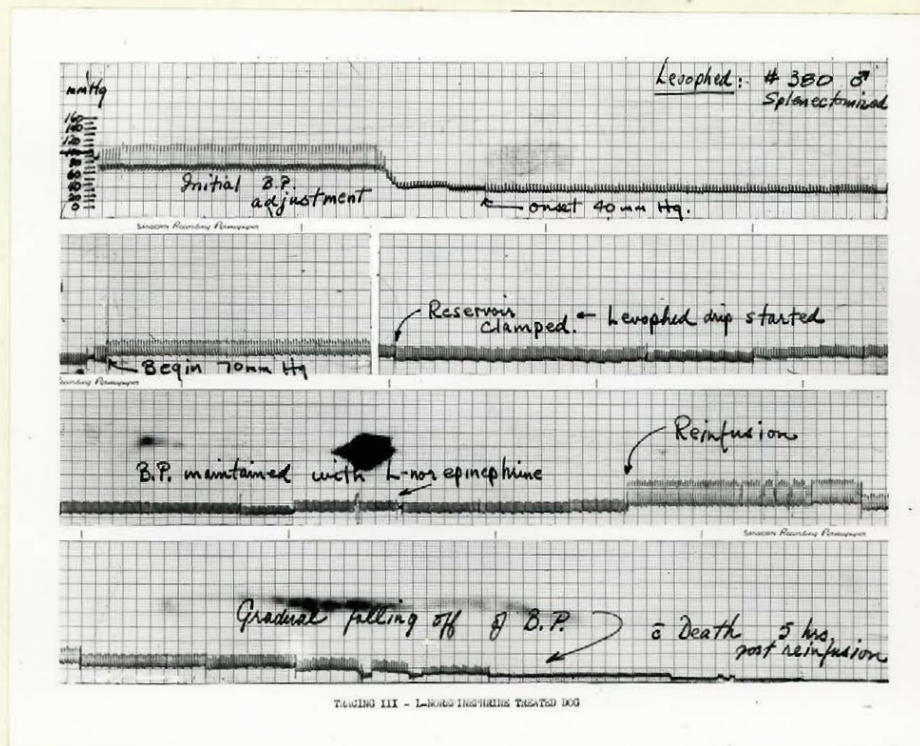 Levophed: # 380 ♂
Splenectomized
mmHg
160
140
120
80
20
0
Initial B.P.
adjustment
onset 40 mm Hg.
SANBORN Recording Permapaper
Reservoir
clamped. ← Levophed drip started
Begin 70mm Hg
Recording Permapaper
Reinfusion
B.P. maintained with L-nor epinephrine
SANBORN Recording Permapaper
Gradual falling off of B.P.
c̄ Death 5 hrs,
post reinfusion
TRACING III - L-NOREPINEPHRINE TREATED DOG